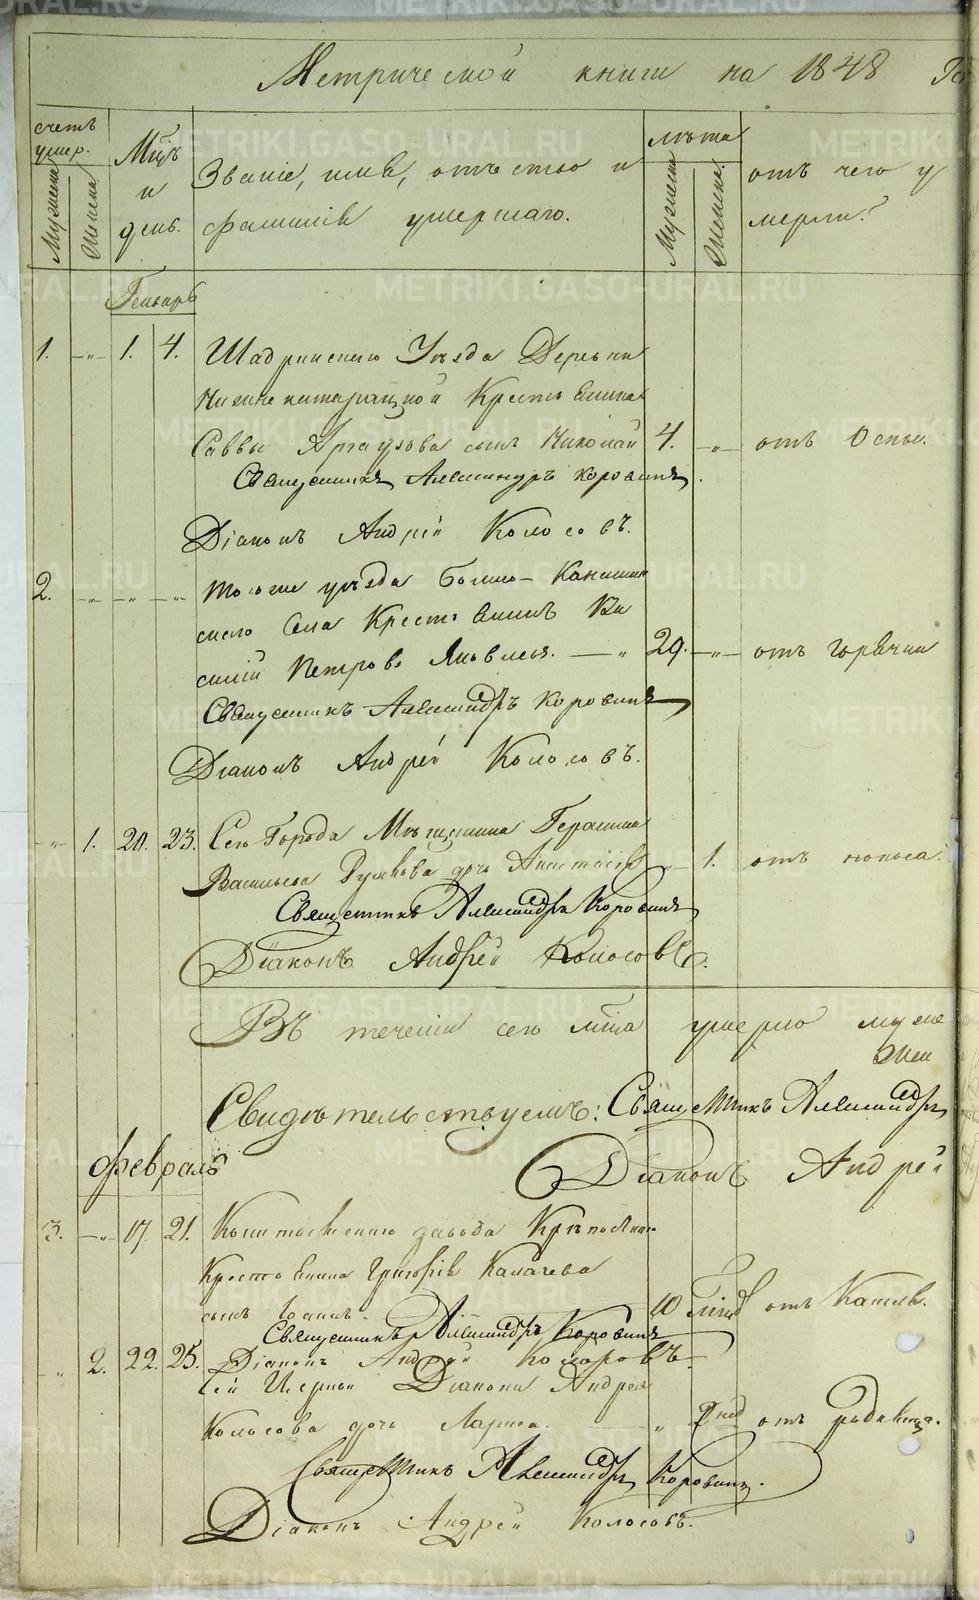 Метрической книги на 1848 Го
счетъ умер.
Мужеска
Женска
Мцъ и день.
Званіе, имя, отчество и
фамилія умершаго.
лѣта
Мужеска
Женска.
отъ чего у
мерли?
Генварь
1. -"- 1. 4. Шадринскаго Уѣзда Деревни
Крестьянина
Саввы сынъ Николай 4. -"- отъ Оспы.
Священникъ Александръ Коровинъ.
Діаконъ Андрей Колосовъ.
2. -"- -"- -"- тогоже уѣзда
скаго Села Крестьянинъ Ва
силій Петровъ Яковлевъ. — " 29. -"- отъ горячки
Священникъ Александръ Коровинъ
Діаконъ Андрей Колосовъ.
-"- 1. 20. 23. Сего Города Мѣщанина Герасима
Васильева дочь " 1. отъ поноса.
Священникъ Александръ Коровинъ
Діаконъ Андрей Колосовъ.
Въ теченіи сего мца умерло муже
Жен
Свидѣтельствуемъ: Священникъ Александръ
Діаконъ Андрей
Февраль
3. -"- 17. 21. завода
Крестьянина Григорія Калачева
сынъ 10 отъ Кашля.
Священникъ Александръ Коровинъ
" 2. 22. 25. Діаконъ Андрей
Сей Церкви Діакона Андрея
Колосова дочь " отъ родимца.
Священникъ Александръ Коровинъ.
Діаконъ Андрей Колосовъ.
METRIKI.GASO-URAL.RU